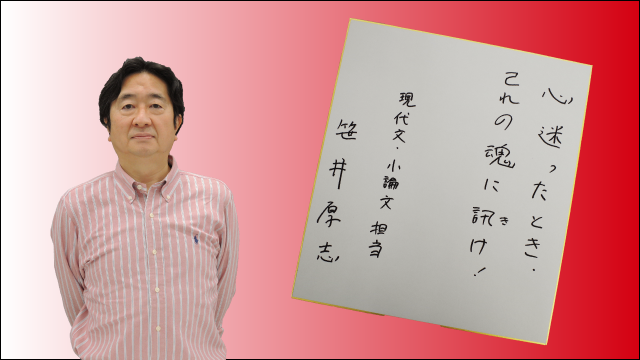 心迷ったとき、
己れの魂に訊け!
き
現代文・小論文 担当
笹井厚志